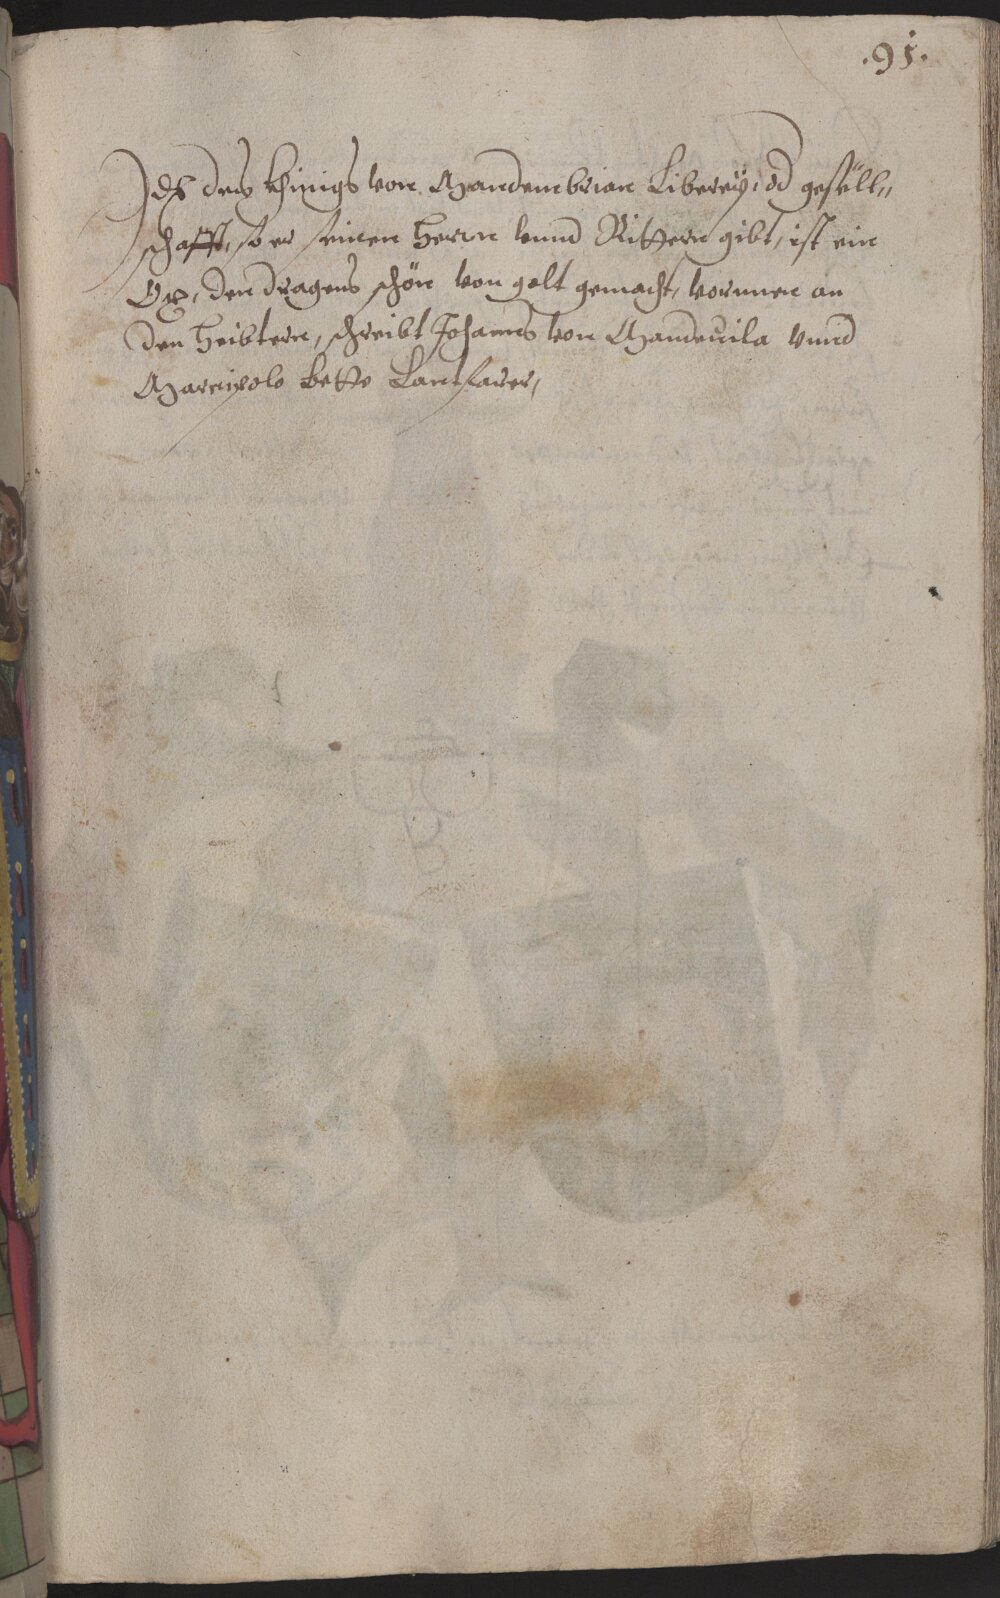 .91.
Ite des khinigs von Mandenbrian Liberey, od gesell„
schafft, so er seinen Herrn vnnd Rittern gibt, ist ein
Ox, den dragens schön von golt gemacht, vornnen an
den heibtern, schreibt Johannes von Mandeuila vnnd
Marcipolo bette Lantfarer,